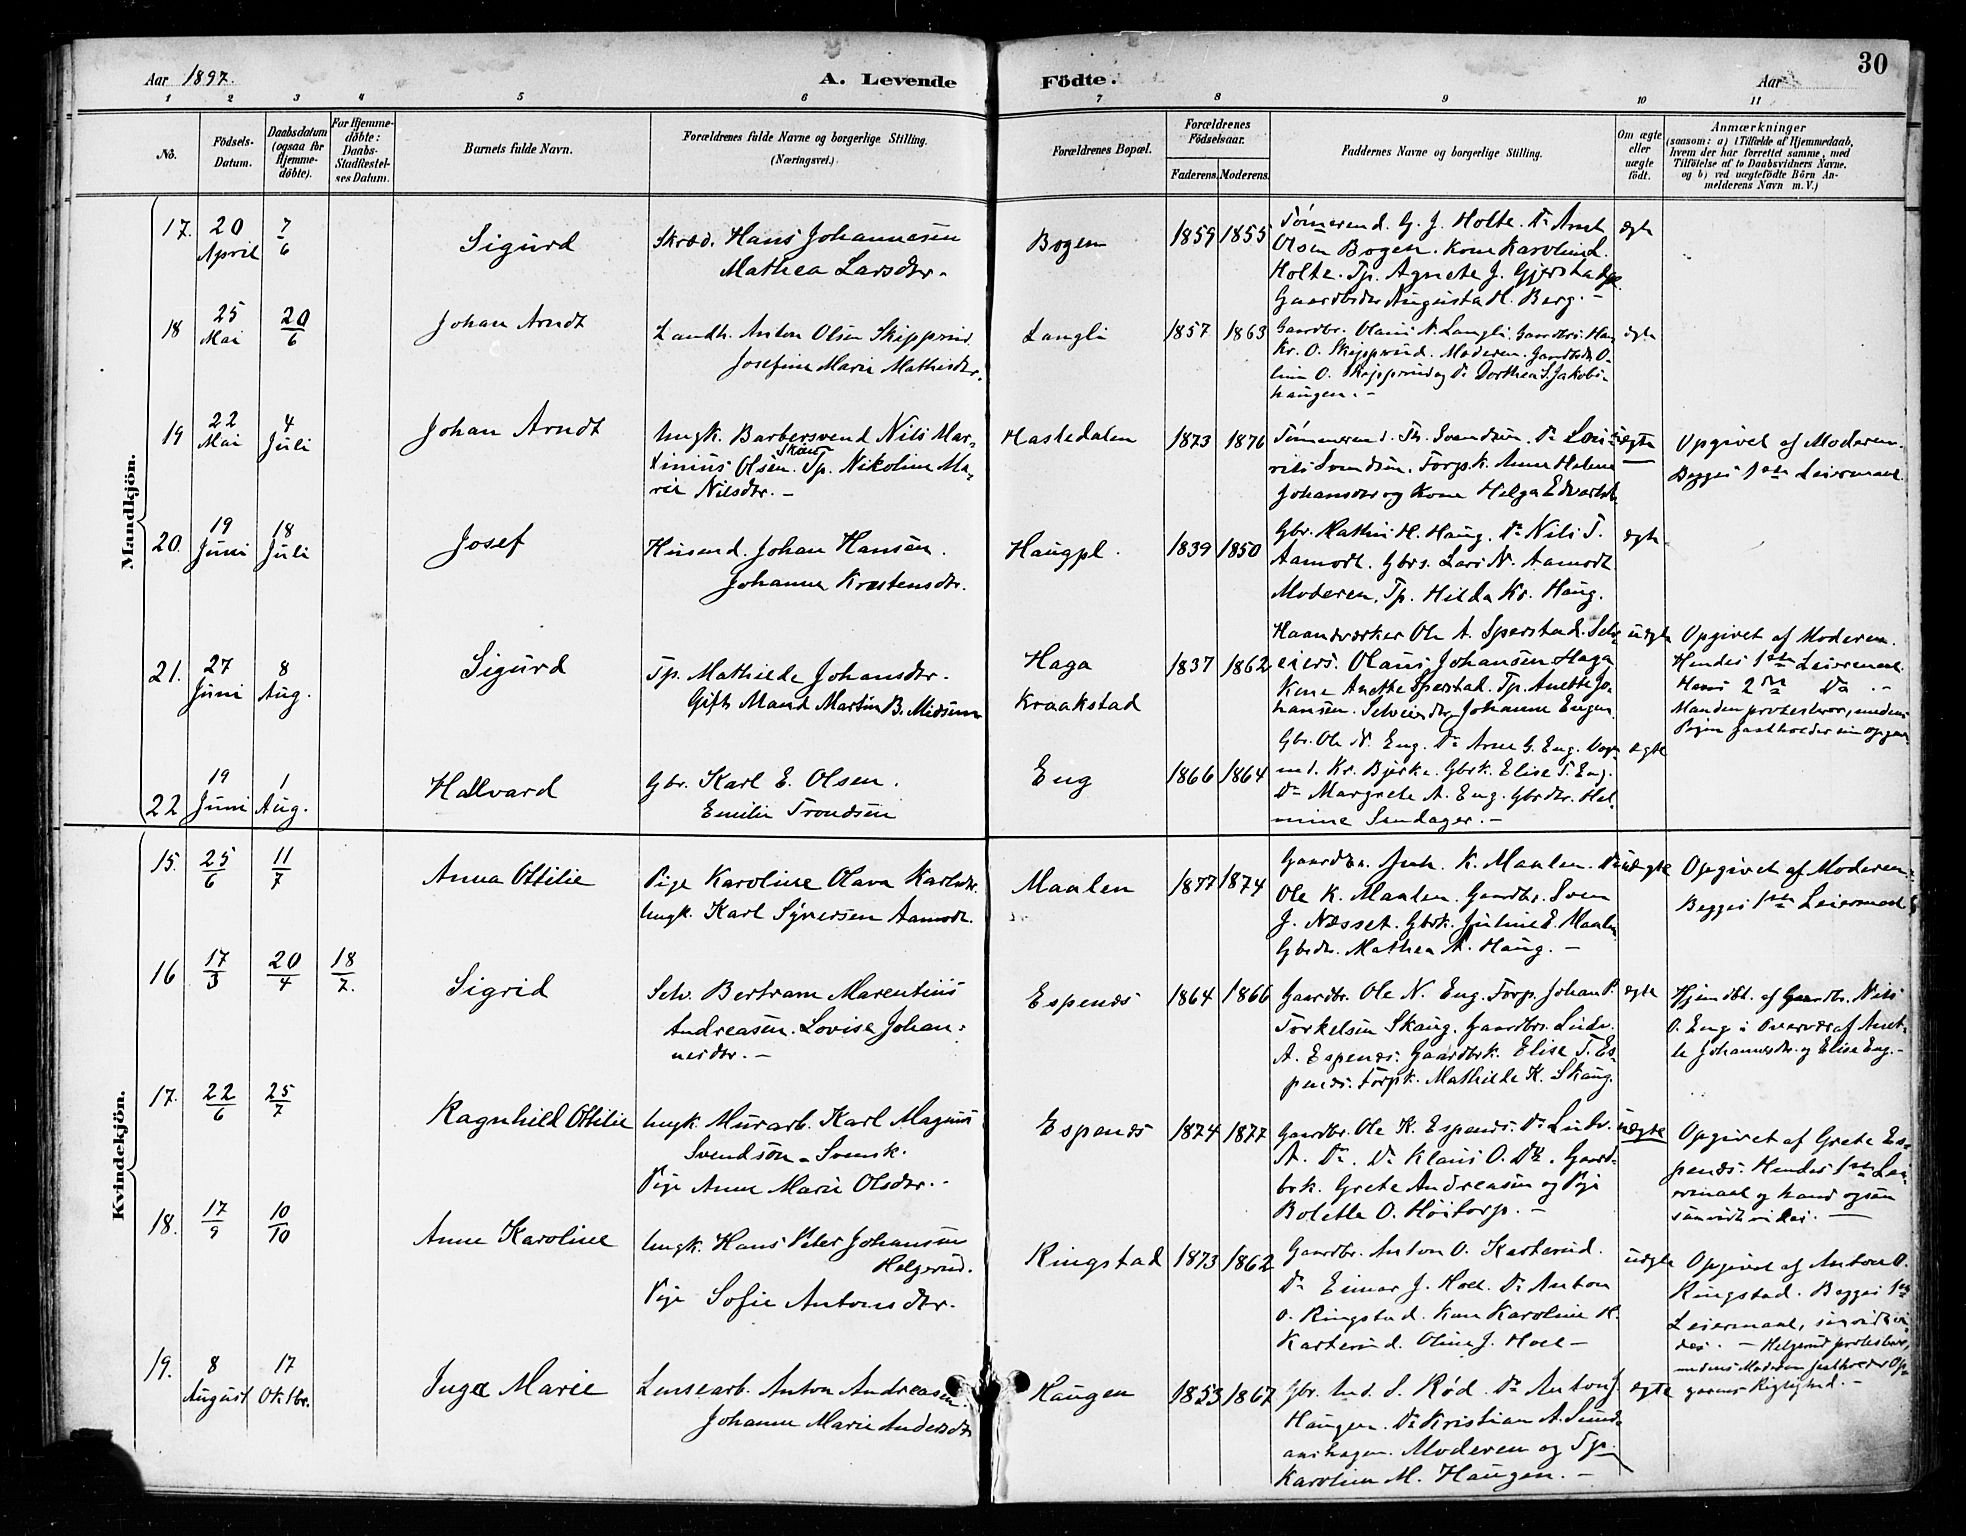 30
Aar 1897.
A. Levende Födte.
Aar
1 2 3 4 5 6 7 8 9 10 11
No.
Födsels-
Datum.
Daabsdatum
(ogsaa for
Hjemme-
döbte).
For Hjemme-
döbte:
Daabs-
Stadfæstel-
ses Datum.
Barnets fulde Navn.
Forældrenes fulde Navne og borgerlige Stilling.
(Næringsvei.)
Forældrenes Bopæl.
Forældrenes
Födselsaar.
Faderens. Moderens.
Faddernes Navne og borgerlige Stilling.
Om ægte
eller
uægte
födt.
Anmærkninger
(saasom: a) i Tilfælde af Hjemmedaab,
hvem der har forrettet samme, med
Tilföielse af to Daabsvidners Navne,
og b) ved uægtefödte Börn An-
melderens Navn m. V.)
Mandkjön.
17. 20 April 7/6 Sigurd
Skræd. Hans Johannesen
Mathea Larsdtr.
Bogen 1859 1855
Tømmermd. G. J. Holte. Do Arnt
Olsen Bogen. Kone Karoline L.
Holte. Tp. Agnete J. Gjerstad
Gaardbrdtr Augusta H. Berg. –
ægte
18 25 Mai 20/6 Johan Arndt
Landh. Anton Olsen Skipprud.
Josefine Marie Mathisdtr.
Langli 1857 1863
Gaardbr. Olaus N. Langli. Gaardbrs. Han
Kr. O. Skipprud. Moderen. Gaardbdtr O-
line O. Skipprud og Do Dorthea S. Jakobs-
haugen. –
ægte
19 22 Mai 4 Juli Johan Arndt
Ungk. Barbersvend Nils Mar-
tinius Olsen Skau. Tp. Nikoline Ma-
rie Nilsdtr. –
Hastedalen 1873 1876
Tømmermd. Th. Svendsen. Do Lau-
rits Svendsen. Forp.k. Anne Helene
Johansdtr og Kone Helga Edvardsd.
uægte
Opgivet af Moderen.
Begges 1ste Leiermaal.
20. 19 Juni 18 Juli Josef
Husmd. Johan Hansen.
Johanne Kristensdtr.
Haugpl. 1839 1850
Gbr. Mathis H. Haug. Do Nils T.
Aamodt. Gbrs. Lars N. Aamodt
Moderen. Tp. Hilda Kr. Haug.
ægte
21. 27 Juni 8 Aug. Sigurd
Tp. Mathilde Johansdtr.
Gift Mand Martin B. Midsum
Haga
Kraakstad
1837 1862
Haandværker Ole A. Sperstad. Selv-
eiers. Olaus Johansen Haga
Kone Anette Sperstad. Tp. Anette Jo-
hansen. Selveierdtr Johanne Engen
uægte
Opgivet af Moderen.
Hendes 1ste Leiermaal
Hans 2det Do –
Manden protesterer, medens
Pigen fastholder sin Opgave
22 19 Juni 1 Aug. Hallvard
Gbr. Karl E. Olsen.
Emilie Trondsen
Eng 1866 1864
Gbr. Ole N. Eng. Do Arne G. Eng. Vogn-
md. Kr. Bjerke. Gbrk. Elise T. Eng.
Do Margrete A. Eng. Gbrdtr. Hel-
mine Søndager. –
ægte
Kvindekjön.
15. 25/6 11/7 Anna Ottilie
Pige Karoline Olava Karlsdtr.
Ungk. Karl Syversen Aamodt.
Maalen 1877 1874
Gaardbr. Joh. K. Maalen. Do
Ole K. Maalen. Gaardbr. Sven
J. Næsset. Gbrk. Juline E. Maalen
Gbrdtr. Mathea A. Haug. –
uægte
Opgivet af Moderen.
Begges 1ste Leiermaal
16 17/3 20/4 18/7. Sigrid
Selv. Bertram Marentius
Andreasen. Lovise Johan-
nesdtr. –
Espenæs 1864 1866
Gaardbr. Ole N. Eng. Forp. Johan P.
Torkelsen Skaug. Gaardbrs. Ludv.
A. Espenæs. Gaardbrk. Elise T. Es-
penæs. Forpk. Mathilde K. Skaug.
ægte
Hjemdbt. af Gaardbr. Nils
O. Eng i Overvær af Anet-
te Johannesdtr. og Elise Eng. –
17. 22/6 25/7 Ragnhild Ottilie
Ungk. Murarb. Karl Magnus
Svendsøn – Svensk.
Pige Anne Marie Olsdtr. –
Espenæs 1874 1877
Gaardbr. Ole K. Espenæs. Do Ludv.
A. Do. Do Klaus O. Do. Gaard-
brk. Grete Andreasen og Pige
Bolette O. Høitorp. –
uægte
Opgivet af Grete Es-
penæs. Hendes 1ste Lei-
ermaal og hans ogsaa
saavidt vides. –
18. 17/9 10/10 Anne Karoline
Ungk. Hans Peter Johansen
Helgerud.
Pige Sofie Antonsdtr.
Ringstad 1873 1862
Gaardbr. Anton O. Karterud.
Do Einar J. Hoel. Do Anton
O. Ringstad. Kone Karoline H.
Karterud. Oline J. Hoel –
uægte
Opgivet af Anton O.
Ringstad. Begges 1ste
Leiermaal, saavidt vi-
des. – Helgerud protesterer,
medens Moderen fastholder Op-
gavens Rigtighed. –
19. 8 August 17 Oktbr. Inga Marie
Lensearb. Anton Andreasen.
Johanne Marie Andersdtr
Haugen 1853 1867
Gbr. And. S. Rød. Do Anton J.
Haugen. Do Kristian A. Sund-
aashagen. Moderen og Tp.
Karoline M. Haugen. –
ægte